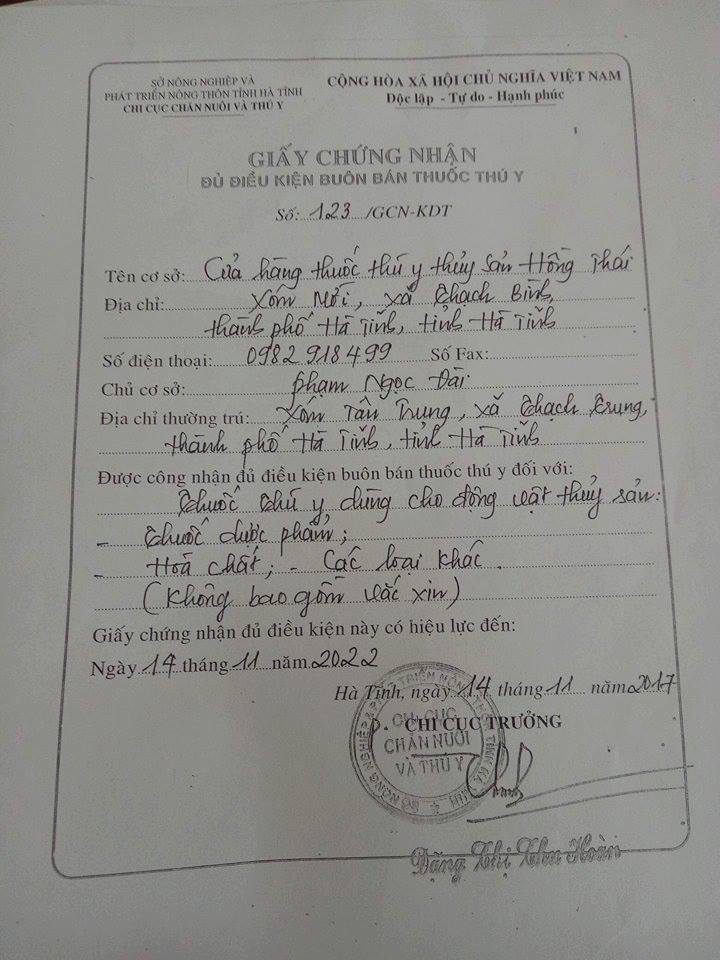 SỞ NÔNG NGHIỆP VÀ
PHÁT TRIỂN NÔNG THÔN TỈNH HÀ TĨNH
CHI CỤC CHĂN NUÔI VÀ THÚ Y
CỘNG HÒA XÃ HỘI CHỦ NGHĨA VIỆT NAM
Độc lập - Tự do - Hạnh phúc
GIẤY CHỨNG NHẬN
ĐỦ ĐIỀU KIỆN BUÔN BÁN THUỐC THÚ Y
Số: 123 /GCN-KDT
Tên cơ sở: Cửa hàng thuốc thú y thủy sản Hồng Thái
Địa chỉ: Xóm Mới, xã Thạch Bình,
thành phố Hà Tĩnh, tỉnh Hà Tĩnh
Số điện thoại: 0982 918 499 Số Fax:
Chủ cơ sở: Phạm Ngọc Đài
Địa chỉ thường trú: Xóm Tân Trung, xã Thạch Trung,
thành phố Hà Tĩnh, tỉnh Hà Tĩnh
Được công nhận đủ điều kiện buôn bán thuốc thú y đối với:
Thuốc thú y dùng cho động vật thủy sản:
- Thuốc dược phẩm;
- Hoá chất; - Các loại khác.
(Không bao gồm vắc xin)
Giấy chứng nhận đủ điều kiện này có hiệu lực đến:
Ngày 14 tháng 11 năm 2022
Hà Tĩnh, ngày 14 tháng 11 năm 2017
P. CHI CỤC TRƯỞNG
CHI CỤC
CHĂN NUÔI
VÀ THÚ Y
Đặng Thị Thu Hoàn